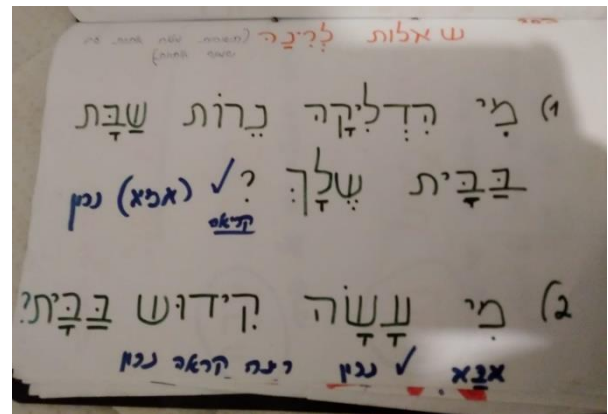 שאלות לְרִינָה
1) מִי הִדְלִיקָה נֵרוֹת שַׁבָּת
בַּבָּיִת שֶׁלָּךְ ? ✓ (אמא) נכון
קריאה
2) מִי עָשָׂה קִידוּשׁ בַּבָּיִת?
אבא ✓ נכון רינה קראה נכון